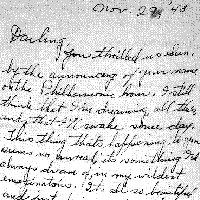 Nov. 27, '43
Darling,
You thrilled us Sun.
by the announcing of your name
on the Philharmonic hour. I still
think that I'm dreaming all this
and that I'll wake some day.
This thing that's happening to you
seems so unreal, it's something I'd
always dream of in my wildest
imaginations. It is so beautiful
and